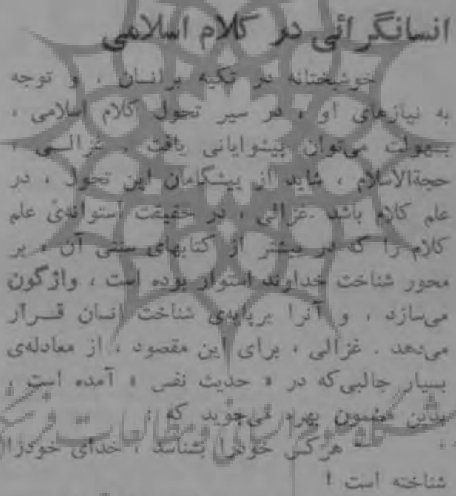 انسانگرائی در کلام اسلامی
خوشبختانه در تکیه بر انسان ، و توجه
به نیازهای او ، در سیر تحول کلام اسلامی ،
بسهولت می‌توان پیشوایانی یافت . غزالــی ،
حجةالاسلام ، شاید از پیشگامان این تحول ، در
علم کلام باشد . غزالی ، در حقیقت استوانه‌ی علم
کلام را که در بیشتر از کتابهای سنتی آن ، بر
محور شناخت خداوند استوار بوده است ، واژگون
می‌سازد ، و آنرا برپایه‌ی شناخت انسان قــرار
می‌دهد . غزالی ، برای این مقصود ، از معادله‌ی
بسیار جالبی‌که در « حدیث نفس » آمده است ،
بدین مضمون بهره می‌جوید که :
- هرکس خودرا بشناسد ، خدای خودرا
شناخته است !
پژوهشگاه علوم انسانی و مطالعات فرهنگی